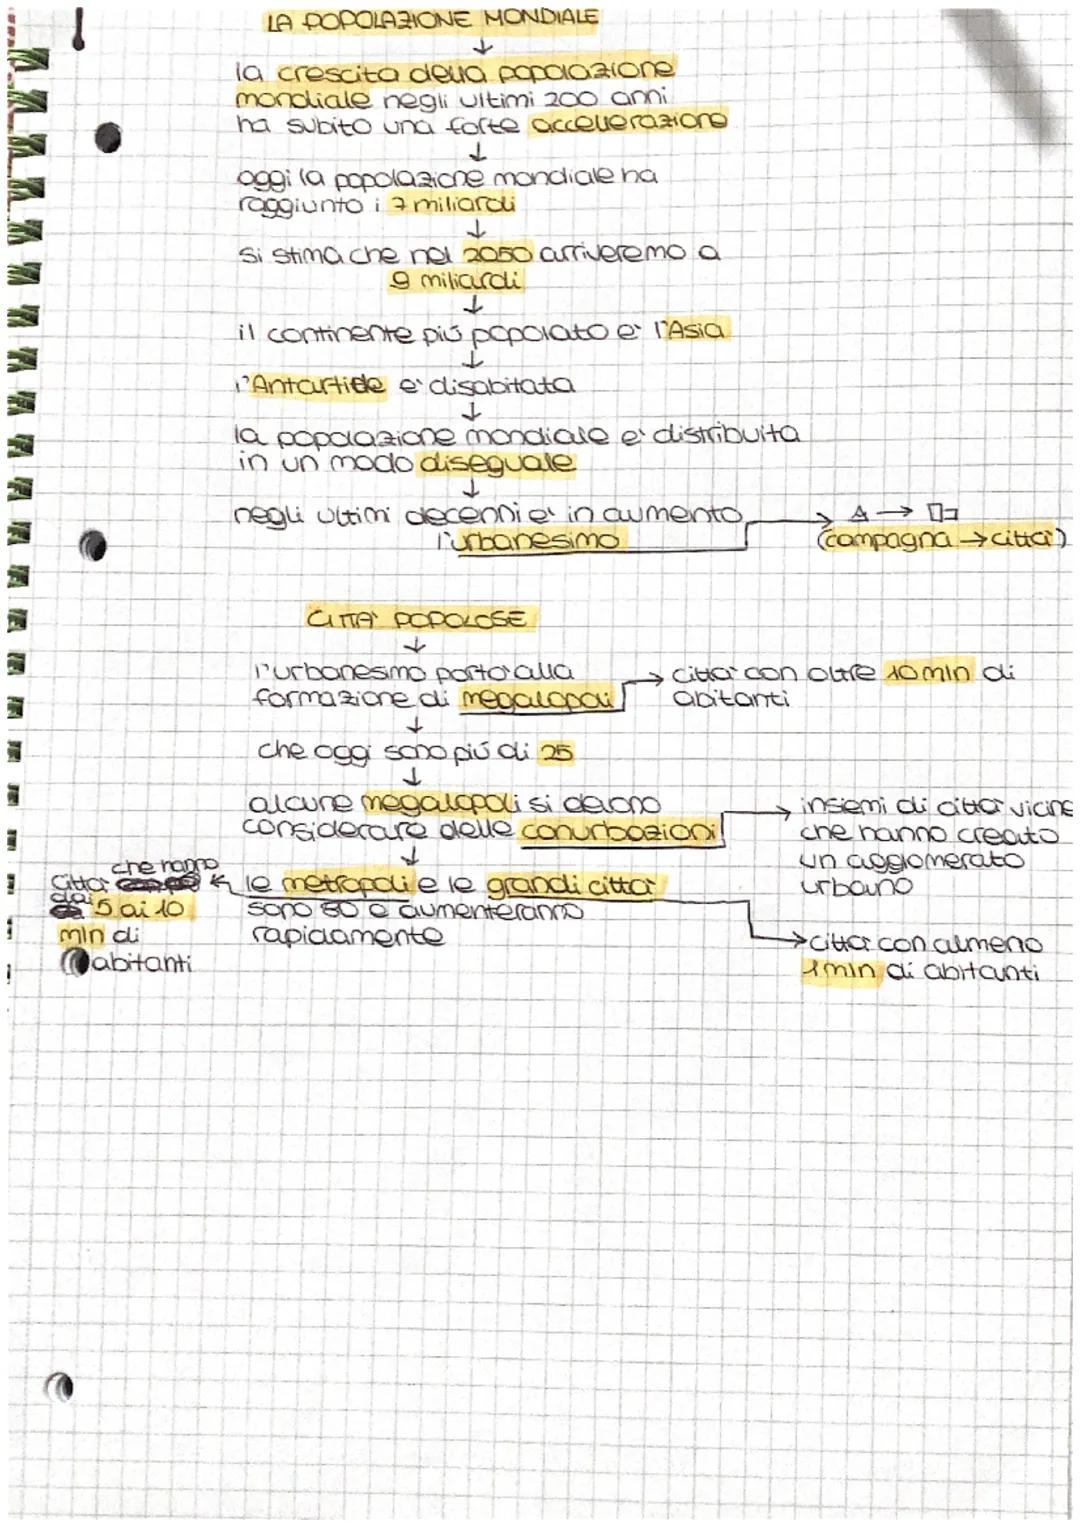 LA POPOLAZIONE MONDIALE
↓
la crescita della popolazione
mondiale negli ultimi 200 anni
ha subito una forte accellerazione
↓
oggi la popolazione mondiale ha
raggiunto i 7 miliardi
↓
si stima che nel 2050 arriveremo a
9 miliardi
↓
il continente piú popolato e' l'Asia
↓
l'Antartide e' disabitata
↓
la popolazione mondiale e' distribuita
in un modo diseguale
↓
negli ultimi decenni e' in aumento
l'urbanesimo
→
(campagna → citta')
CITTA' POPOLOSE
↓
l'urbanesimo porto' alla → citta' con oltre 10 mln di
formazione di megalopoli abitanti
↓
che oggi sono piú di 25
↓
alcune megalopoli si devono → insiemi di citta' vicine
considerare delle conurbazioni che hanno creato
↓ un agglomerato
urbano
le metropoli e le grandi citta'
sono 80 e aumenteranno
rapidamente
citta' che hanno
dai 5 ai 10
mln di
abitanti
→ citta' con almeno
1 mln di abitanti